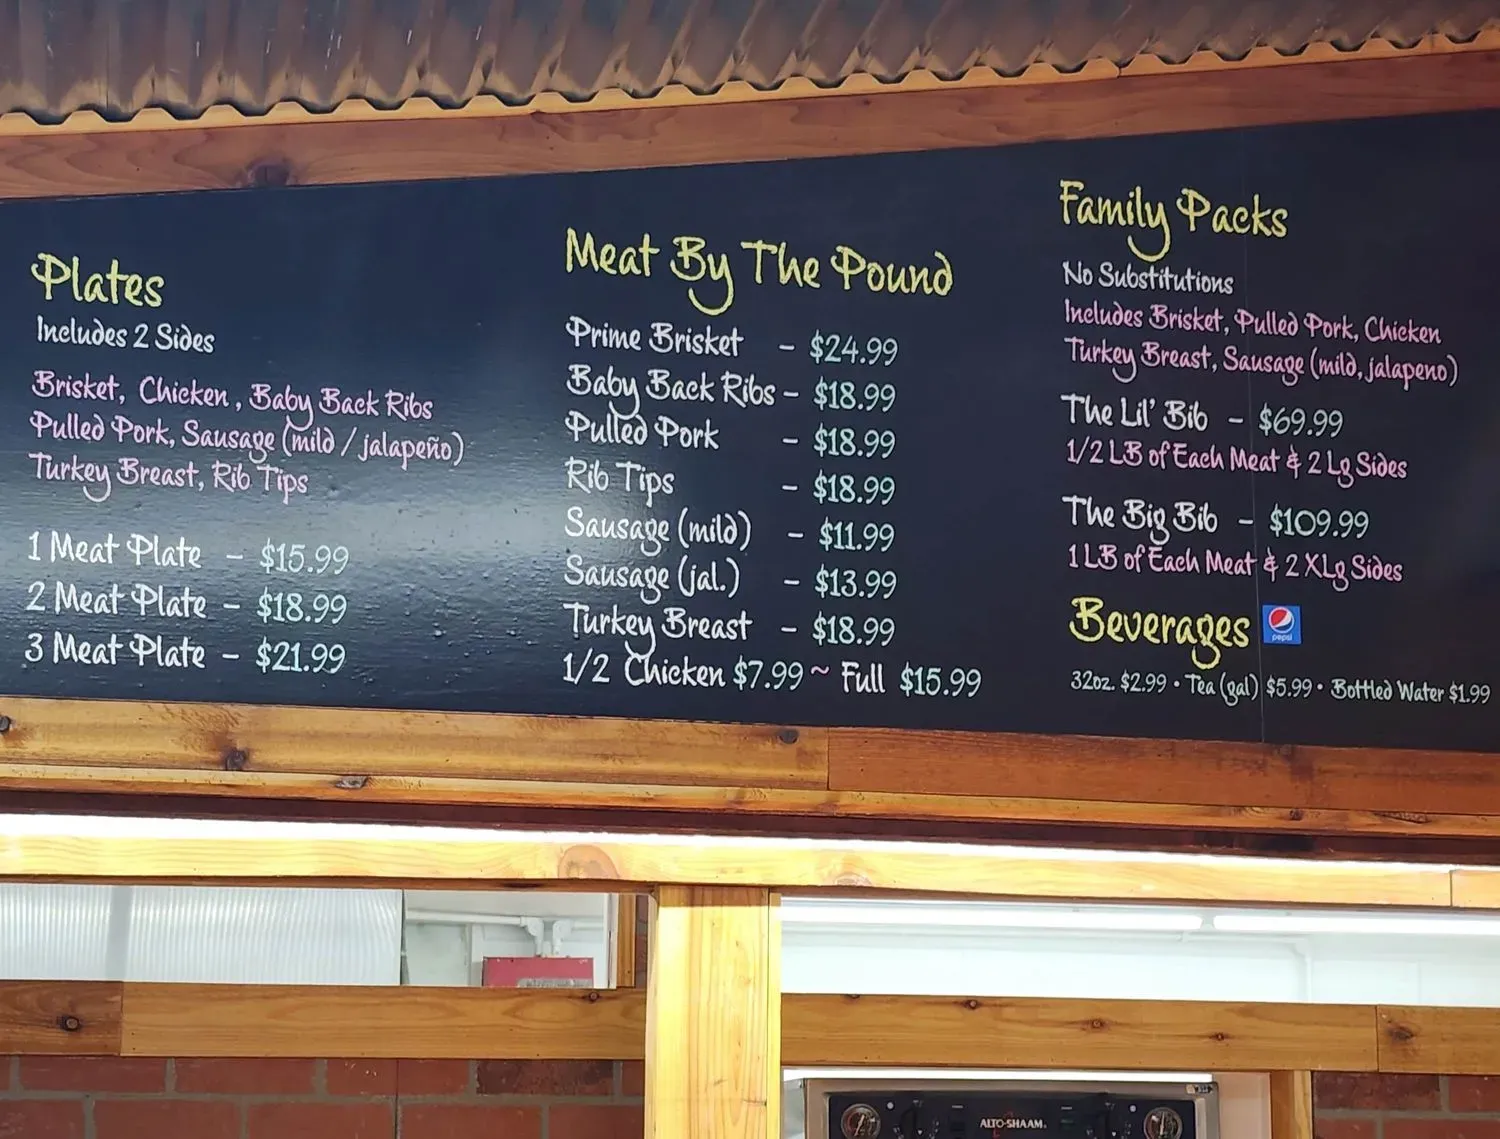 Plates
Includes 2 Sides
Brisket, Chicken, Baby Back Ribs
Pulled Pork, Sausage (mild / jalapeño)
Turkey Breast, Rib Tips
1 Meat Plate - $15.99
2 Meat Plate - $18.99
3 Meat Plate - $21.99
Meat By The Pound
Prime Brisket - $24.99
Baby Back Ribs - $18.99
Pulled Pork - $18.99
Rib Tips - $18.99
Sausage (mild) - $11.99
Sausage (jal.) - $13.99
Turkey Breast - $18.99
1/2 Chicken $7.99 ~ Full $15.99
Family Packs
No Substitutions
Includes Brisket, Pulled Pork, Chicken
Turkey Breast, Sausage (mild, jalapeno)
The Lil' Bib - $69.99
1/2 LB of Each Meat & 2 Lg Sides
The Big Bib - $109.99
1 LB of Each Meat & 2 XLg Sides
Beverages pepsi
32oz. $2.99 • Tea (gal) $5.99 • Bottled Water $1.99
ALTO-SHAAM